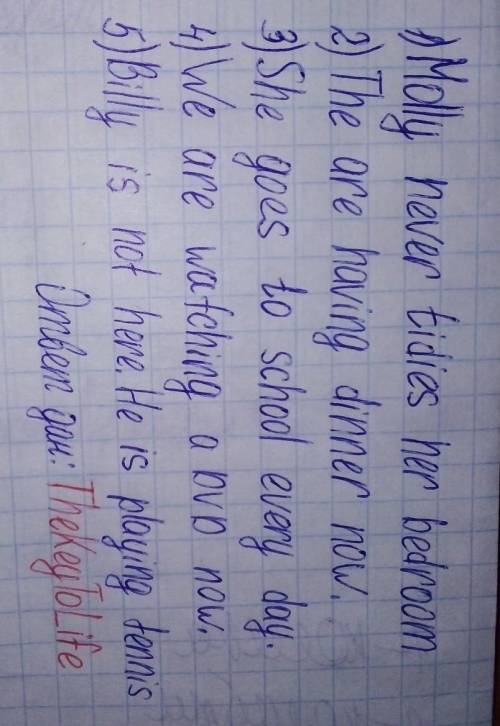 1) Molly never tidies her bedroom
2) The are having dinner now.
3) She goes to school every day.
4) We are watching a DVD now.
5) Billy is not here. He is playing tennis
Ответ дал: TheKeyToLife